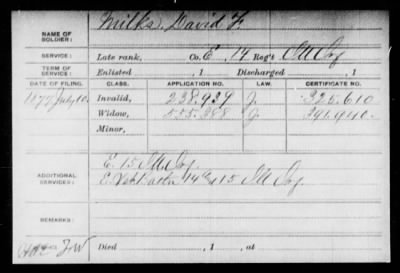 NAME OF SOLDIER: Milks, David F.
SERVICE: Late rank, Co. E, 14 Reg't Ill Inf
TERM OF SERVICE: Enlisted , 1 Discharged , 1
DATE OF FILING. CLASS. APPLICATION NO. LAW. CERTIFICATE NO.
1877 July 10. Invalid, 238.937 J. 325.610
Widow, J. 391.940
Minor,
ADDITIONAL SERVICES: E. 15 Ill Inf.
E. Vet Battn 14 & 15 Ill Inf.
REMARKS:
Died , 1 , at